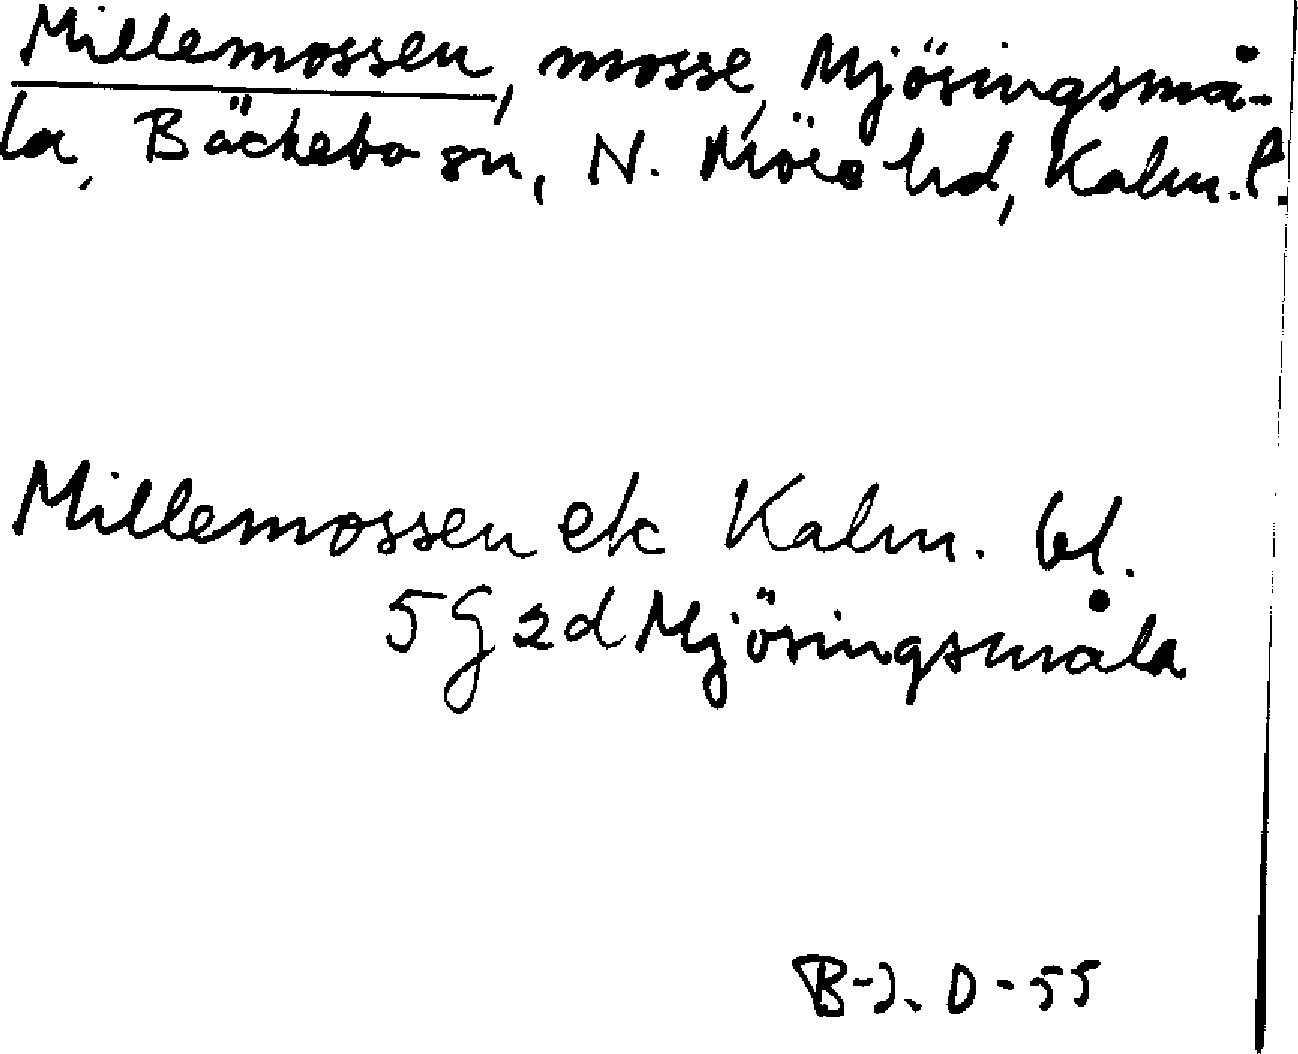 Millemossen, mosse, Mjösingsmå-
la, Bäckebo sn, N. Möre hd, Kalm. l.
Millemossen ek Kalm. bl.
5G 2d Mjösingsmåla
B-J. D-55